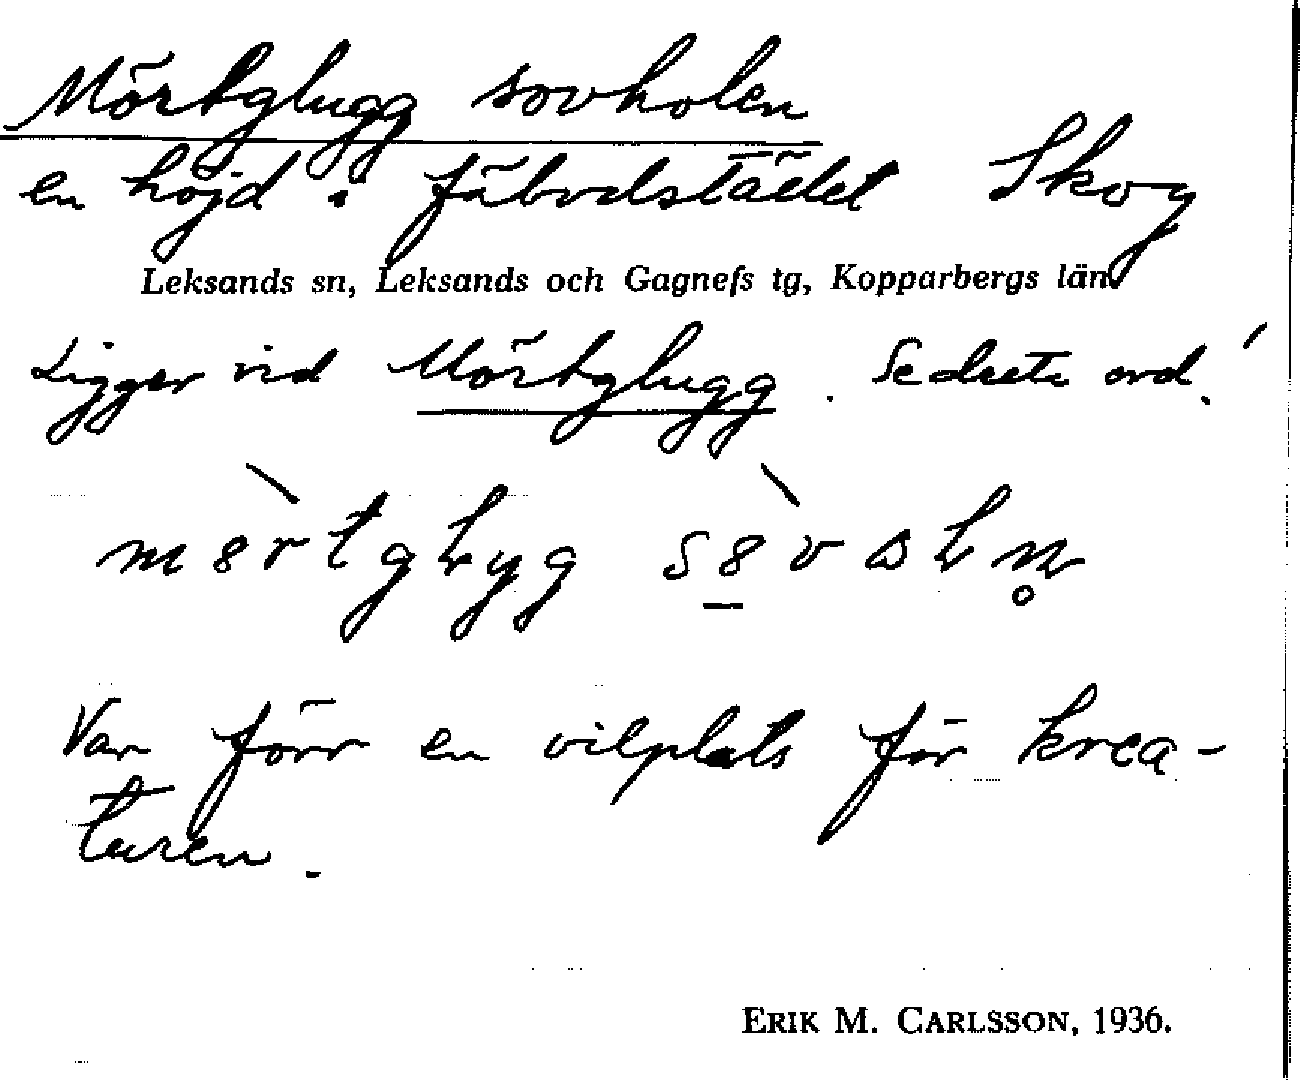 Mörtglugg sovholen
en höjd i fäbodstället Skog
Leksands sn, Leksands och Gagnefs tg, Kopparbergs län.
Ligger vid Mörtglugg. Se detta ord!
Var förr en vilplats för krea-
turen.
ERIK M. CARLSSON, 1936.